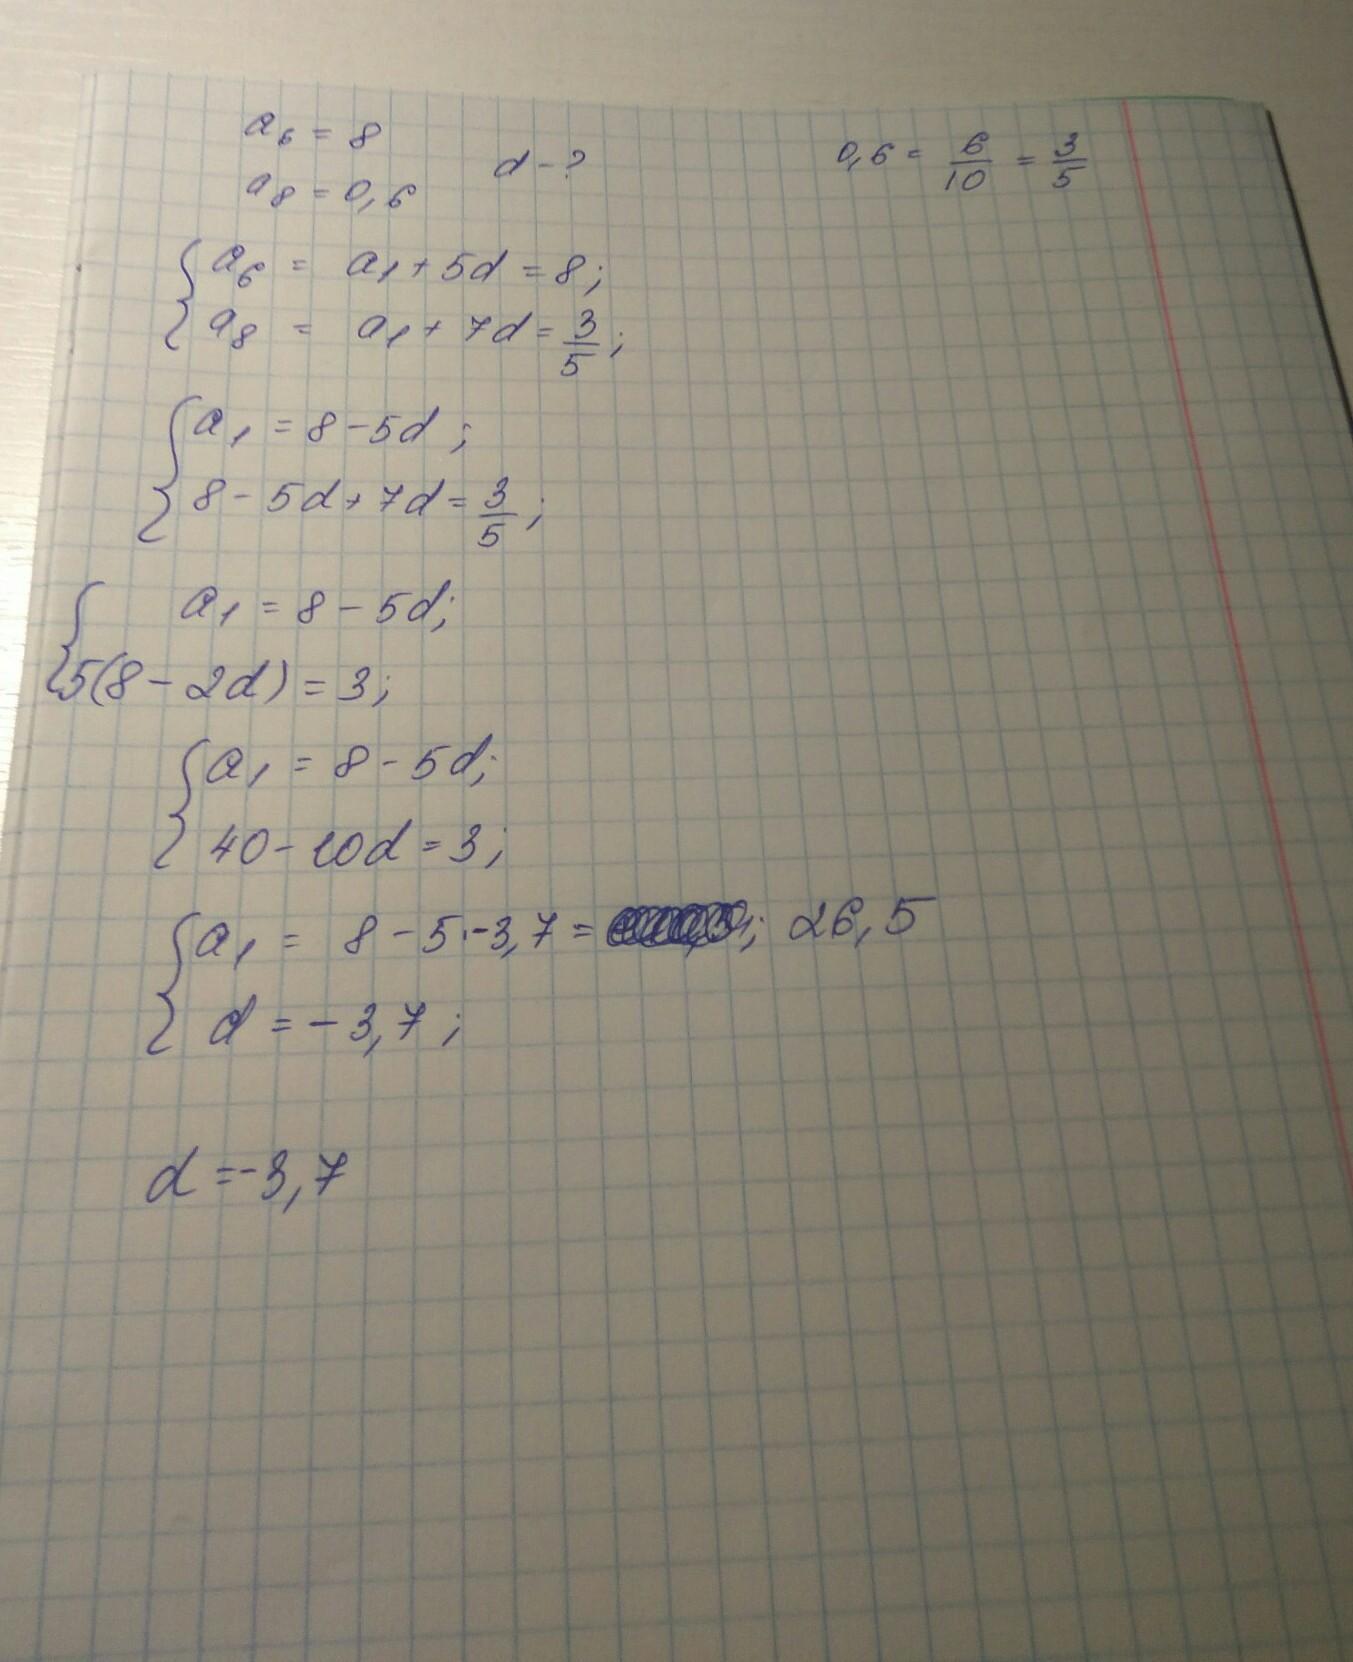 a₆ = 8
a₈ = 0,6
d - ?
0,6 = 6/10 = 3/5
{ a₆ = a₁ + 5d = 8;
a₈ = a₁ + 7d = 3/5;
{ a₁ = 8 - 5d;
8 - 5d + 7d = 3/5;
{ a₁ = 8 - 5d;
5(8 - 2d) = 3;
{ a₁ = 8 - 5d;
40 - 10d = 3;
{ a₁ = 8 - 5 · -3,7 = ; 26,5
d = -3,7;
d = -3,7